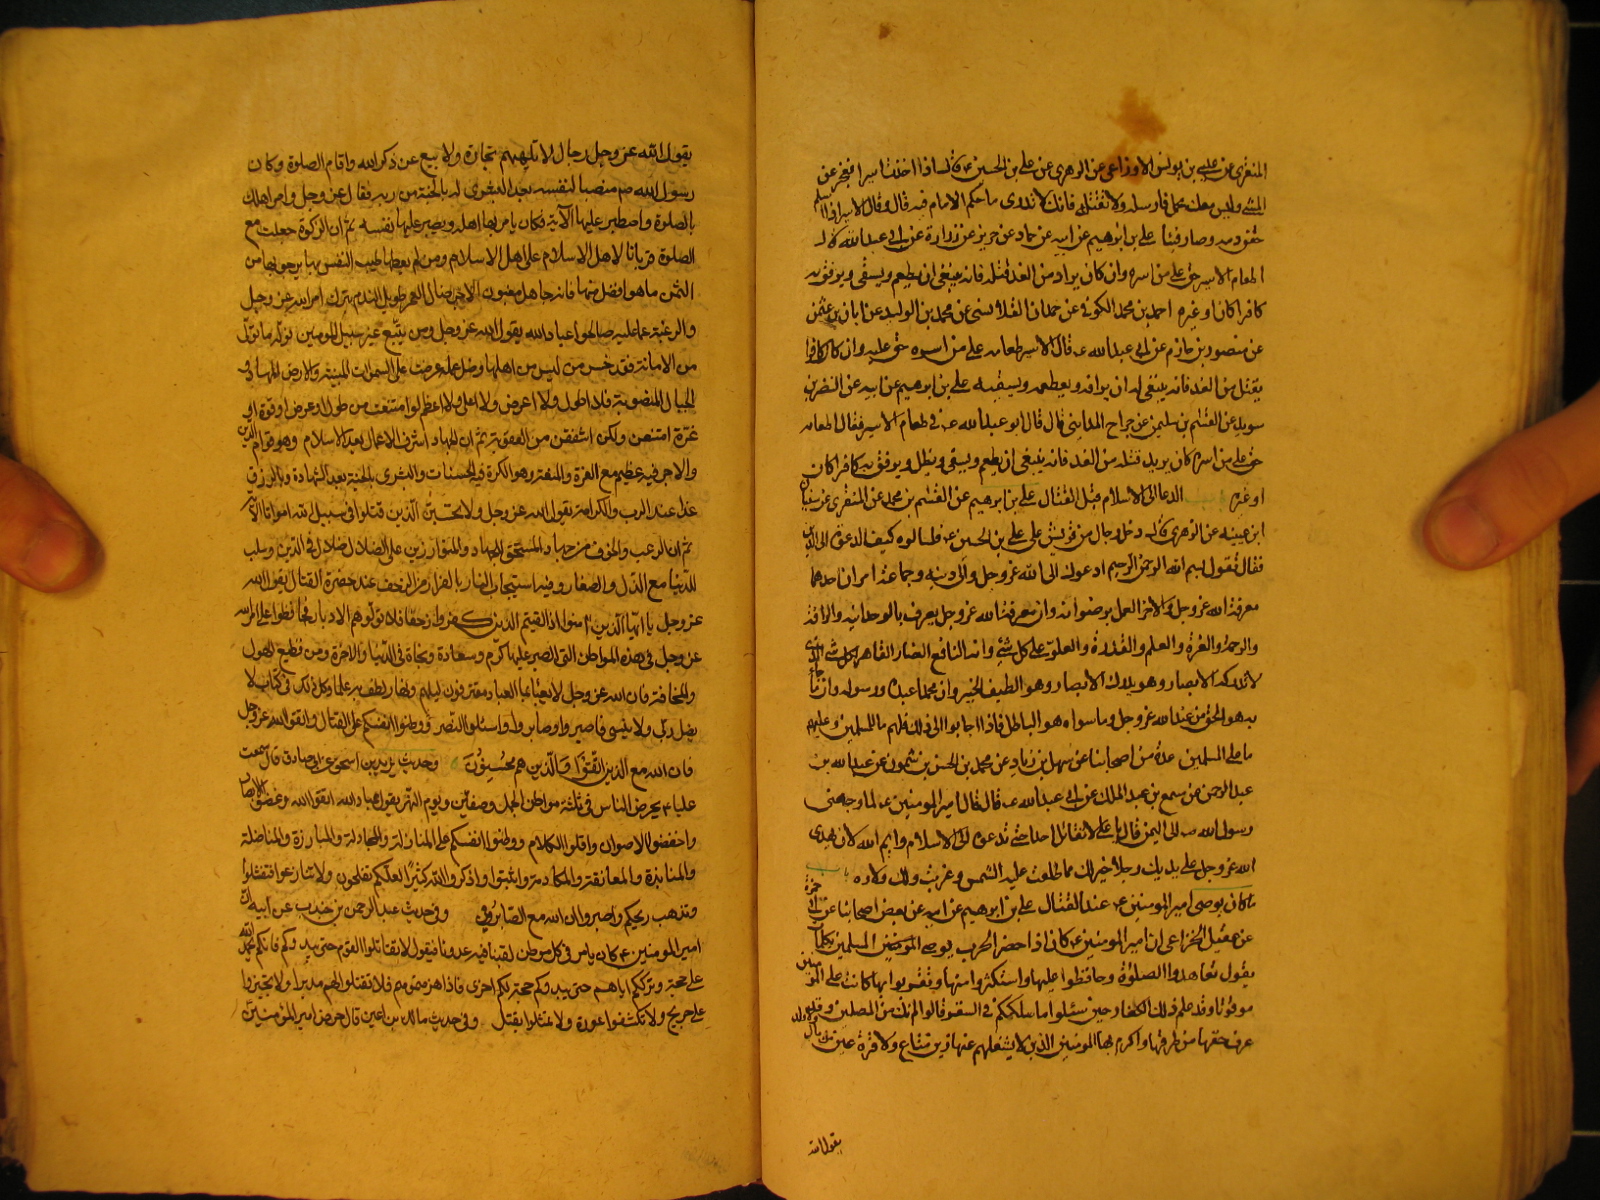 المنقرى عن عيسى بن يونس الاوزاعى عن الزهرى عن على بن الحسين ع قال اذا اخذت اسيرا فعجز عن
المشى وليس معك محمل فارسله ولا تقتله فانك لا تدرى ما حكم الامام فيه قال وقال الاسير اذا اسلم
حقن دمه وصار فيئا على بن ابرهيم عن ابيه عن حماد عن حريز عن زرارة عن ابى عبدالله ع قال
اطعام الاسير حق على من اسره وان كان يراد من الغد قتله فانه ينبغى ان يطعم ويسقى ويرفق به
كافرا كان او غيره احمد بن محمد الكوفى عن حمدان القلانسى عن محمد بن الوليد عن ابان بن عثمن
عن منصور بن حازم عن ابى عبدالله ع قال الاسير طعامه على من اسره حق عليه وان كان كافرا
يقتل من الغد فانه ينبغى له ان يرافه ويطعمه ويسقيه على بن ابرهيم عن ابيه عن النضر بن
سويد عن القسم بن سليمن عن جراح المداينى قال قال ابو عبدالله ع فى طعام الاسير فقال اطعامه
حق على من اسره وان كان يريد قتله من الغد فانه ينبغى ان يطعم ويسقى ويظل ويرفق به كافرا كان
او غيره باب الدعا الى الاسلام قبل القتال على بن ابرهيم عن القسم بن محمد عن المنقرى عن سفيان
ابن عيينه عن الزهرى قال دخل رجال من قريش على على بن الحسين ع فسالوه كيف الدعوة الى الدين
فقال تقول بسم الله الرحمن الرحيم ادعوك الى الله عز وجل والى دينه وجماعته امران احدهما
معرفة الله عز وجل والاخر العمل برضوانه وان معرفة الله عز وجل يعرف بالوحدانيه والرافة
والرحمة والعزة والعلم والقدرة والعلو على كل شئ وانه النافع الضار القاهر لكل شى الذى
لا تدركه الابصار وهو يدرك الابصار وهو اللطيف الخبير وان محمدا عبده ورسوله وان ما جاء
به هو الحق من عند الله عز وجل وما سواه هو الباطل فاذا اجابوا الى ذلك فلهم ما للمسلمين وعليهم
ما على المسلمين عدة من اصحابنا عن سهل بن زياد عن محمد بن الحسن بن شمون عن عبدالله بن
عبدالرحمن عن مسمع بن عبدالملك عن ابى عبدالله ع قال قال امير المومنين ع لما وجهنى
رسول الله ص الى اليمن قال يا على لا تقاتل احدا حتى تدعوه الى الاسلام وايم الله لان يهدى
الله عز وجل على يديك رجلا خير لك مما طلعت عليه الشمس وغربت ولك ولاوه باب
ما كان يوصى امير المومنين ع عند القتال على بن ابرهيم عن ابيه عن بعض اصحابنا عن ابى حمزة
عن عقيل الخزاعى ان امير المومنين ع كان اذا حضر الحرب يوصى المسلمين بكلمات
يقول تعاهدوا الصلوة وحافظوا عليها واستكثروا منها وتقربوا بها كانت على المومنين
موقوتا وقد علم ذلك الكفار حين سئلوا ما سلككم فى سقر قالوا لم نك من المصلين وقد
عرف حقها من طرقها واكرم بها المومنين الذين لا يشغلهم عنها زين متاع ولا قرة عين من مال ولا ولد
يقول الله
يقول الله عز وجل رجال لا تلهيهم تجارة ولا بيع عن ذكر الله واقام الصلوة وكان
رسول الله ص منصبا لنفسه بعد البشرى له بالجنة من ربه فقال عز وجل وامر اهلك
بالصلوة واصطبر عليها الآية فكان يامر بها اهله ويصبر عليها نفسه ثم ان الزكوة جعلت مع
الصلوة قربانا لاهل الاسلام على اهل الاسلام ومن لم يعطها طيب النفس بها يرجو بها من
الثمن ما هو افضل منها فانه جاهل مغبون الاجر ضال العمر طويل الندم بترك امر الله عز وجل
والرغبة عما عليه صالحوا عباد الله يقول الله عز وجل ومن يتبع غير سبيل المومنين نوله ما تولى
من الامانة فقد خسر من ليس من اهلها وضل عمله عرضت على السموات المبنية والارض المهاد و
الجبال المنصوبة فلا اطول ولا اعرض ولا اعلى ولا اعظم لو امتنعت من طول او عرض او قوة او
عزة امتنعن ولكن اشفقن من العقوبة ثم ان الجهاد اشرف الاعمال بعد الاسلام وهو قوام الدين
والاجر فيه عظيم مع العزة والمنعة وهو الكرة فيه الحسنات والبشرى بالجنة بعد الشهادة وبالرزق
غدا عند الرب والكرامة يقول الله عز وجل ولا تحسبن الذين قتلوا فى سبيل الله امواتا الآية
ثم ان الرعب والخوف من جهاد المستحق للجهاد والمتوازرين على الضلال ضلال فى الدين وسلب
للدنيا مع الذل والصغار وفيه استيجاب النار بالفرار من الزحف عند حضرة القتال يقول الله
عز وجل يا ايها الذين آمنوا اذا لقيتم الذين كفروا زحفا فلا تولوهم الادبار فحافظوا على امر الله
عز وجل فى هذه المواطن التى الصبر عليها كرم وسعادة ونجاة فى الدنيا والاخرة ومن فظيع الهول
والمخافة فان الله عز وجل لا يعبا بما العباد مقترفون ليلهم ونهارهم لطف به علما وكل ذلك فى كتاب لا
يضل ربى ولا ينسى فاصبروا وصابروا واسئلوا النصر ووطنوا انفسكم على القتال واتقوا الله عز وجل
فان الله مع الذين اتقوا والذين هم محسنون وحديث يزيد بن اسحق عن ابى صادق قال سمعت
عليا ع يحرض الناس فى ثلثة مواطن الجمل وصفين ويوم النهر يقول عباد الله اتقوا الله وغضوا الابصار
واخفضوا الاصوات واقلوا الكلام ووطنوا انفسكم على المنازلة والمجادلة والمبارزة والمناضلة
والمنابذة والمعانقة والمكادمة واثبتوا واذكروا الله كثيرا لعلكم تفلحون ولا تنازعوا فتفشلوا
وتذهب ريحكم واصبروا ان الله مع الصابرين وفى حديث عبدالرحمن بن جندب عن ابيه ان
امير المومنين ع كان يامر فى كل موطن لقينا فيه عدونا فيقول لا تقاتلوا القوم حتى يبدوكم فانكم بحمد الله
على حجة وترككم اياهم حتى يبدوكم حجة لكم اخرى فاذا هزمتموهم فلا تقتلوا لهم مدبرا ولا تجيزوا
على جريح ولا تكشفوا عورة ولا تمثلوا بقتيل وفى حديث مالك بن اعين قال حرض امير المومنين